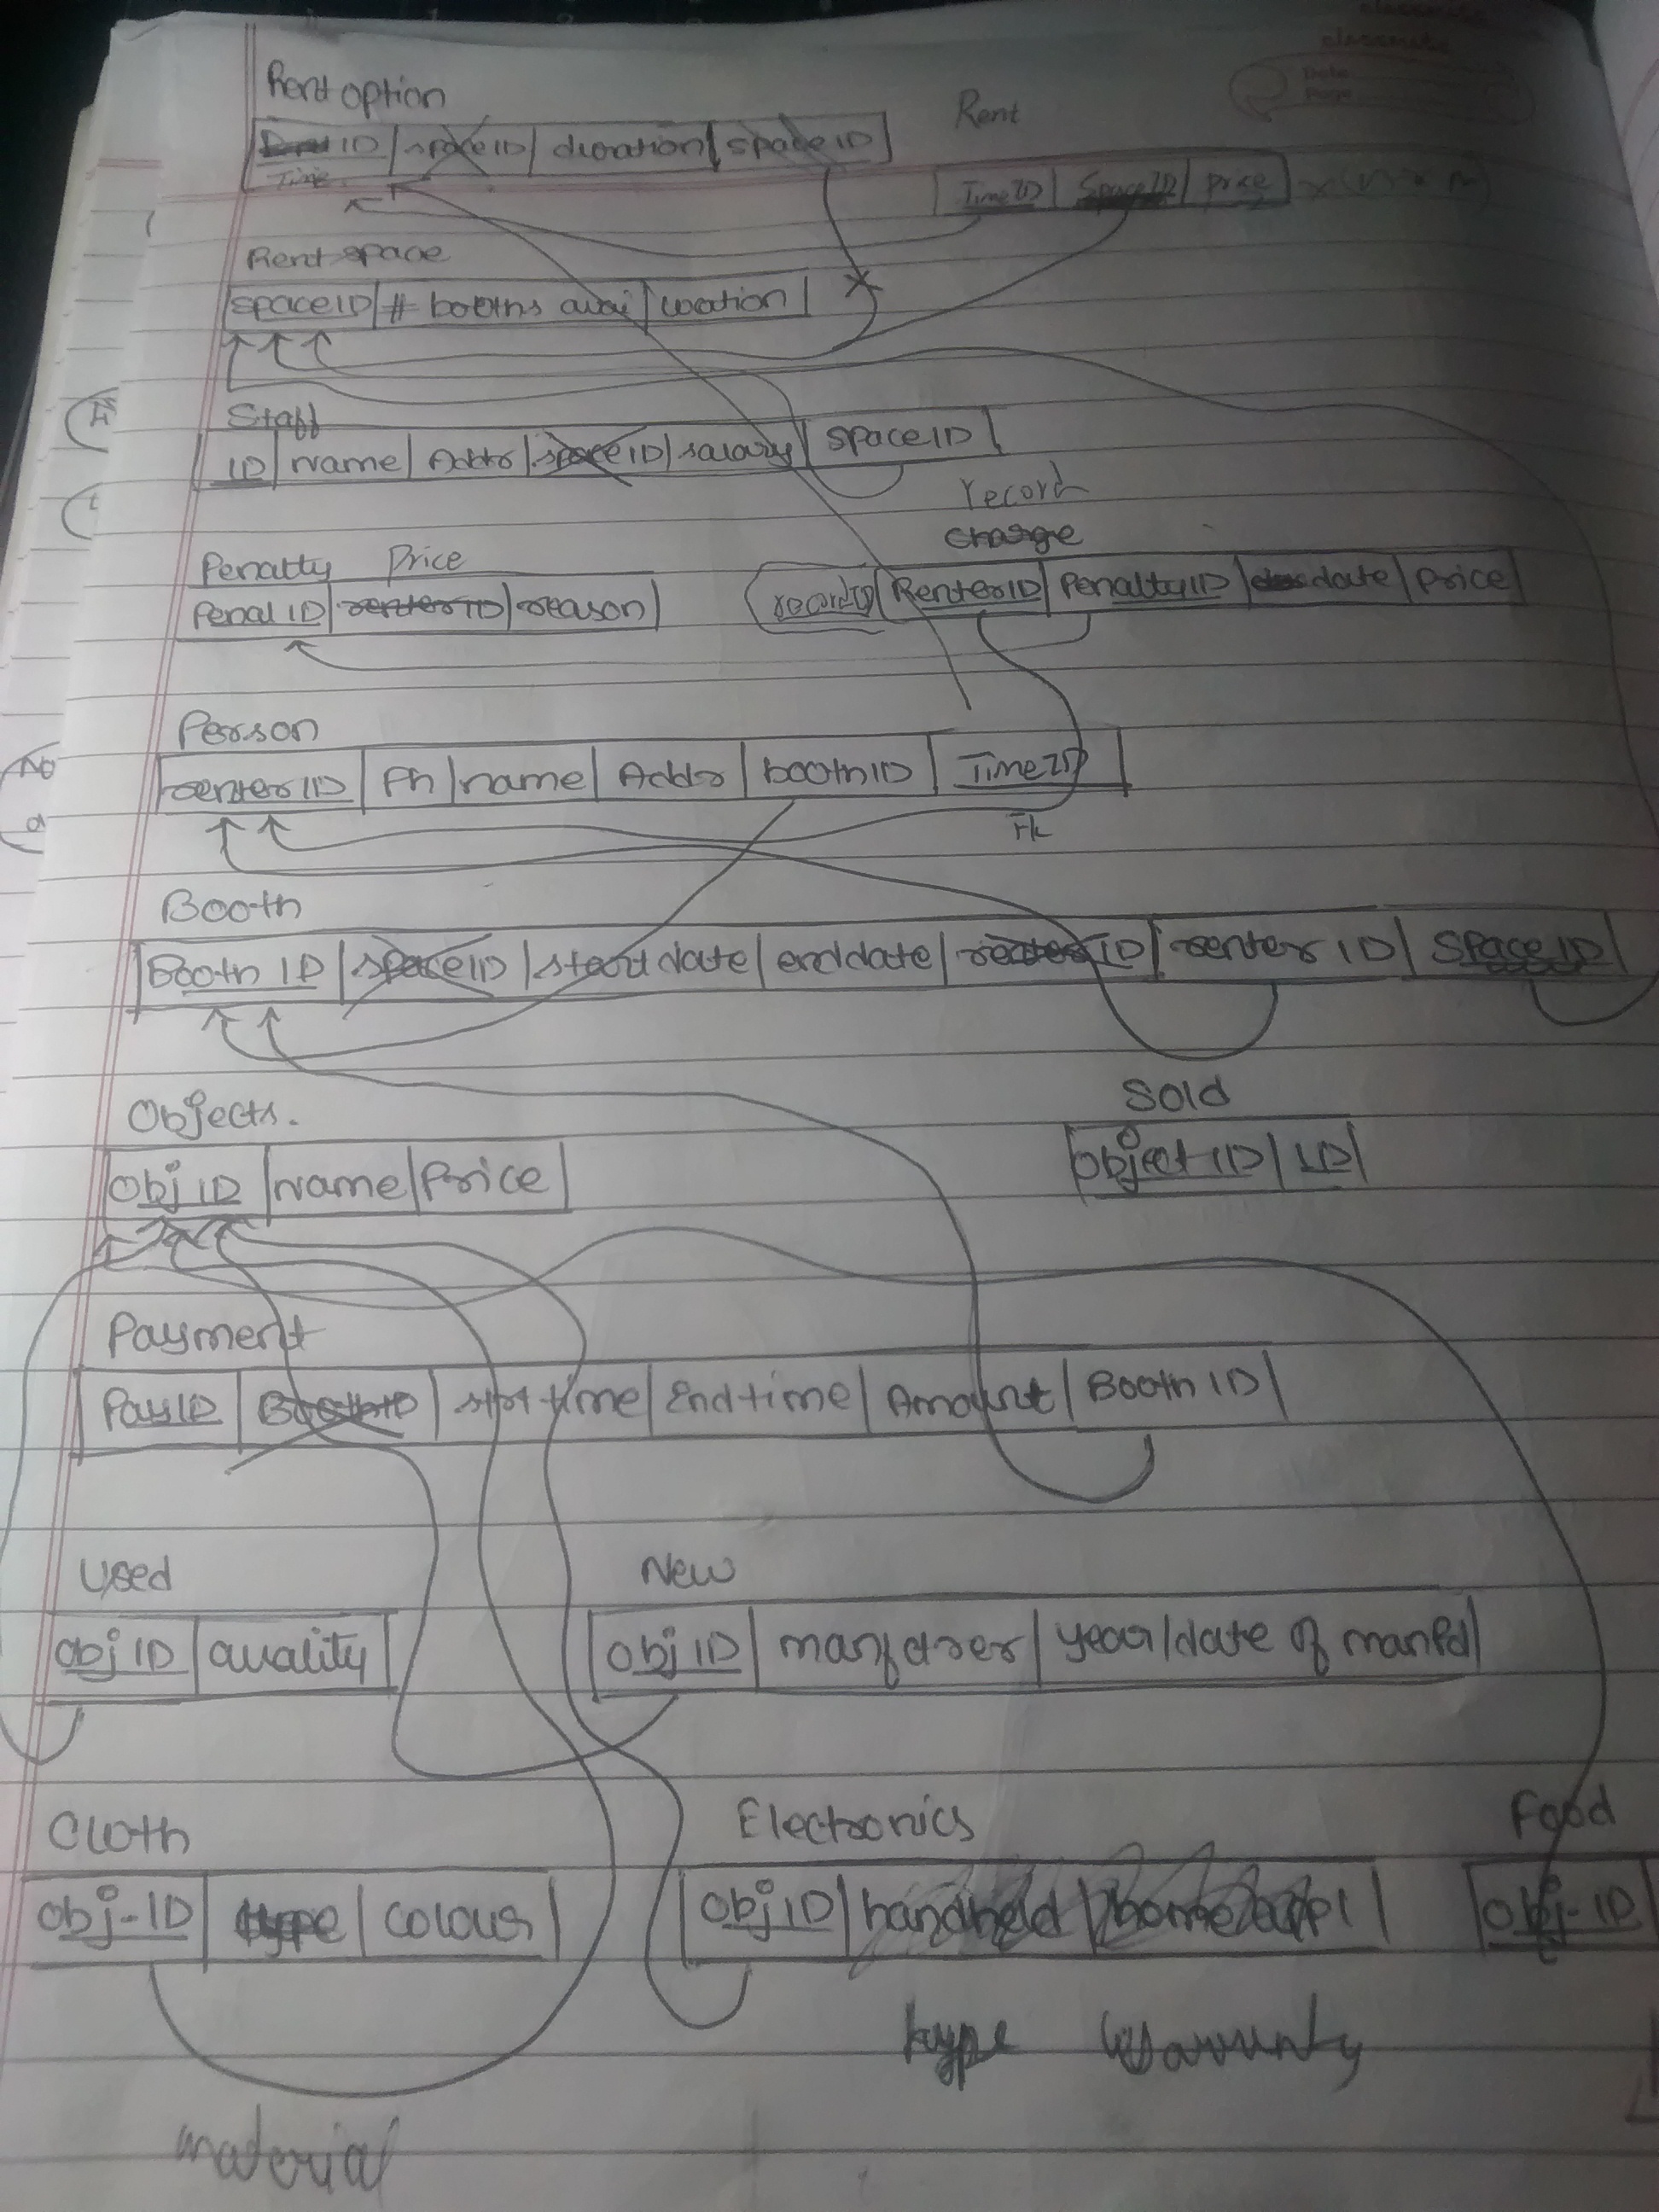 classmate
Date
Page
Rent option
Rent
ID | space ID | duration | space ID
Time
Time ID | Space ID | Price
Rent space
space ID | # booths avai | location
Staff
ID | Name | Addr | space ID | salary | space ID
record
charge
Penalty Price
Penal ID | renter ID | reason
record ID | Renter ID | Penalty ID | date | Price
Person
renter ID | Ph | name | Addr | booth ID | Time ID
Fk
Booth
Booth ID | space ID | start date | end date | renter ID | renter ID | Space ID
Objects.
Sold
Obj ID | Name | Price
Object ID | ID
Payment
Pay ID | Booth ID | strt time | End time | Amount | Booth ID
Used
New
obj ID | quality
obj ID | manfctrer | year/date of manfd
Cloth
Electronics
Food
obj-ID | type | colour
Obj ID | handheld | home appl
Obj-ID
type Warrunty
material